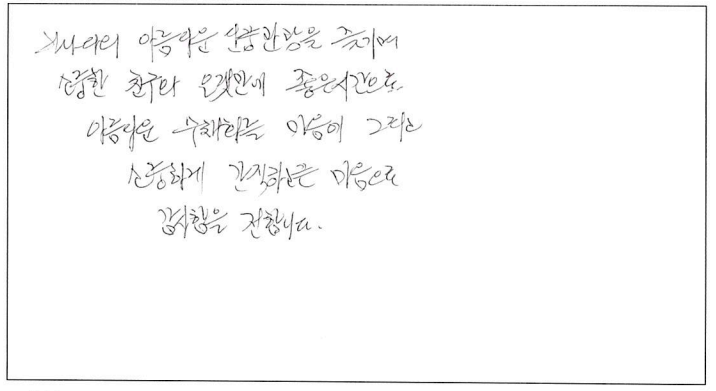 캐나다의 아름다운 단풍관광을 즐기며
소중한 친구와 오랫만에 좋은시간으로
아름다운 수채화를 마음에 그리는
소중하게 간직하는 마음으로
감사함을 전합니다.